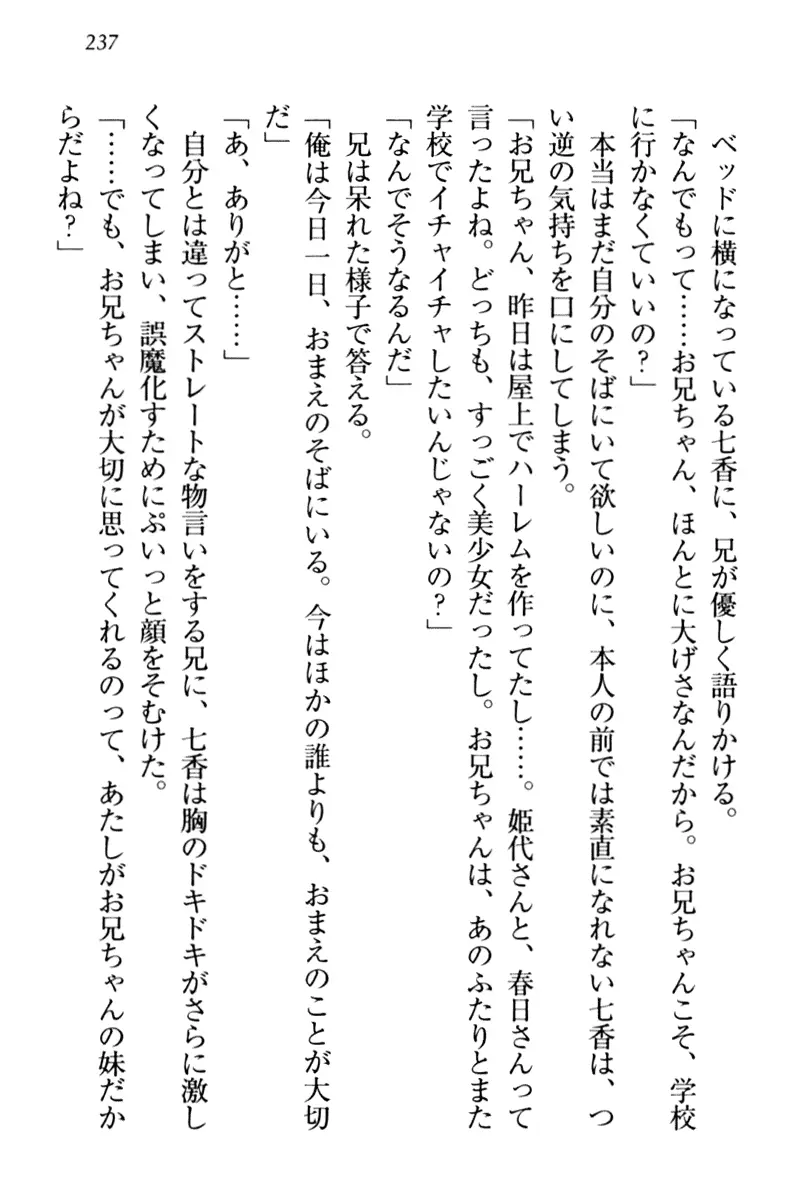 237
ベッドに横になっている七香に、兄が優しく語りかける。
「なんでもって……お兄ちゃん、ほんとに大げさなんだから。お兄ちゃんこそ、学校
に行かなくていいの？」
本当はまだ自分のそばにいて欲しいのに、本人の前では素直になれない七香は、つ
い逆の気持ちを口にしてしまう。
「お兄ちゃん、昨日は屋上でハーレムを作ってたし……。姫代さんと、春日さんって
言ったよね。どっちも、すっごく美少女だったし。お兄ちゃんは、あのふたりとまた
学校でイチャイチャしたいんじゃないの？」
「なんでそうなるんだ」
兄は呆れた様子で答える。
「俺は今日一日、おまえのそばにいる。今はほかの誰よりも、おまえのことが大切
だ」
「あ、ありがと……」
自分とは違ってストレートな物言いをする兄に、七香は胸のドキドキがさらに激し
くなってしまい、誤魔化すためにぷいっと顔をそむけた。
「……でも、お兄ちゃんが大切に思ってくれるのって、あたしがお兄ちゃんの妹だか
らだよね？」